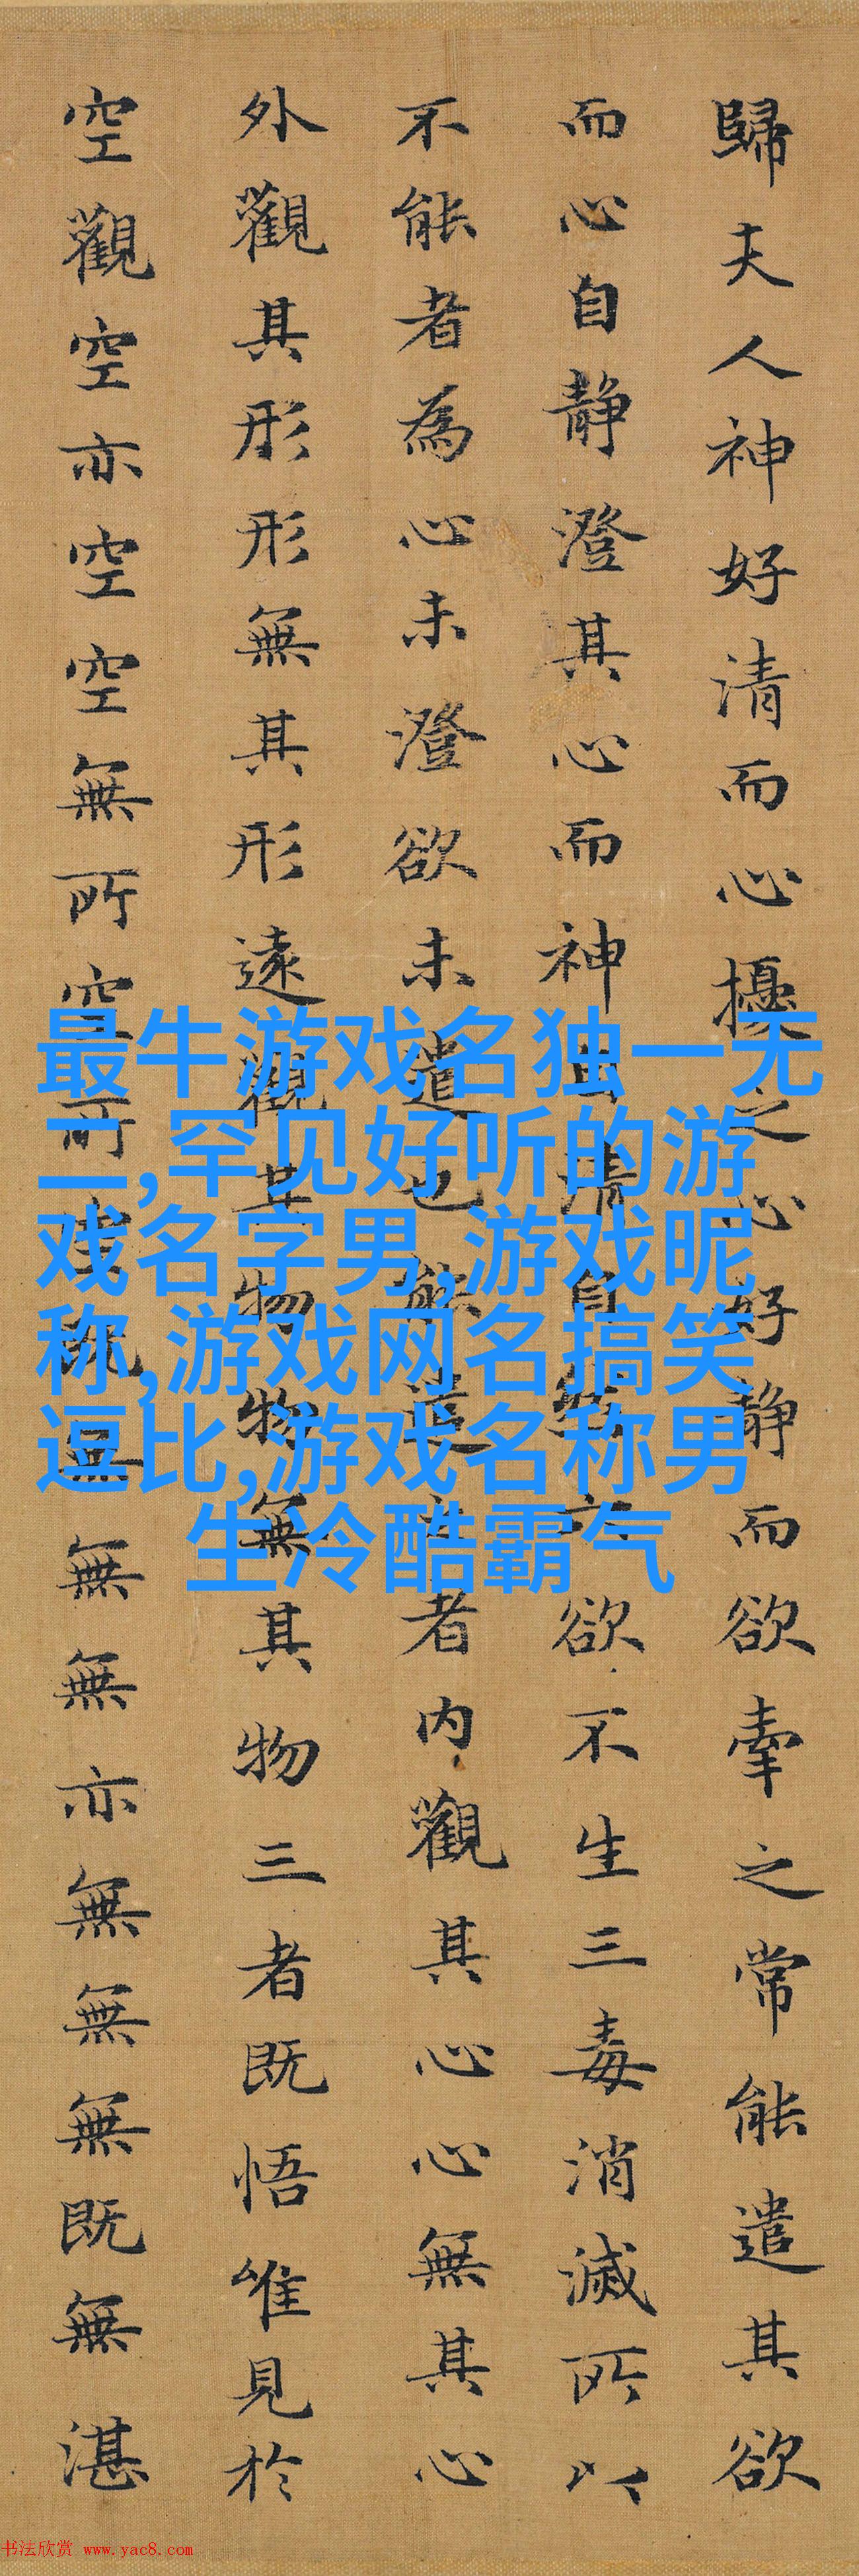 歸夫人神好清而心擾之心好静而欲牽之常能遣其欲
而心自静澄其心而神自清自然六欲不生三毒消滅所以
不能者為心未澄欲未遣也能遣之者内觀其心心無其心
外觀其形形無其形遠觀其物物無其物三者既悟唯見於
空觀空亦空空無所空所空既無無無亦無無無既無湛
最牛游戏名独一无
二,罕见好听的游
戏名字男,游戏昵
称,游戏网名搞笑
逗比,游戏名称男
生冷酷霸气
书法欣赏 www.yac8.com